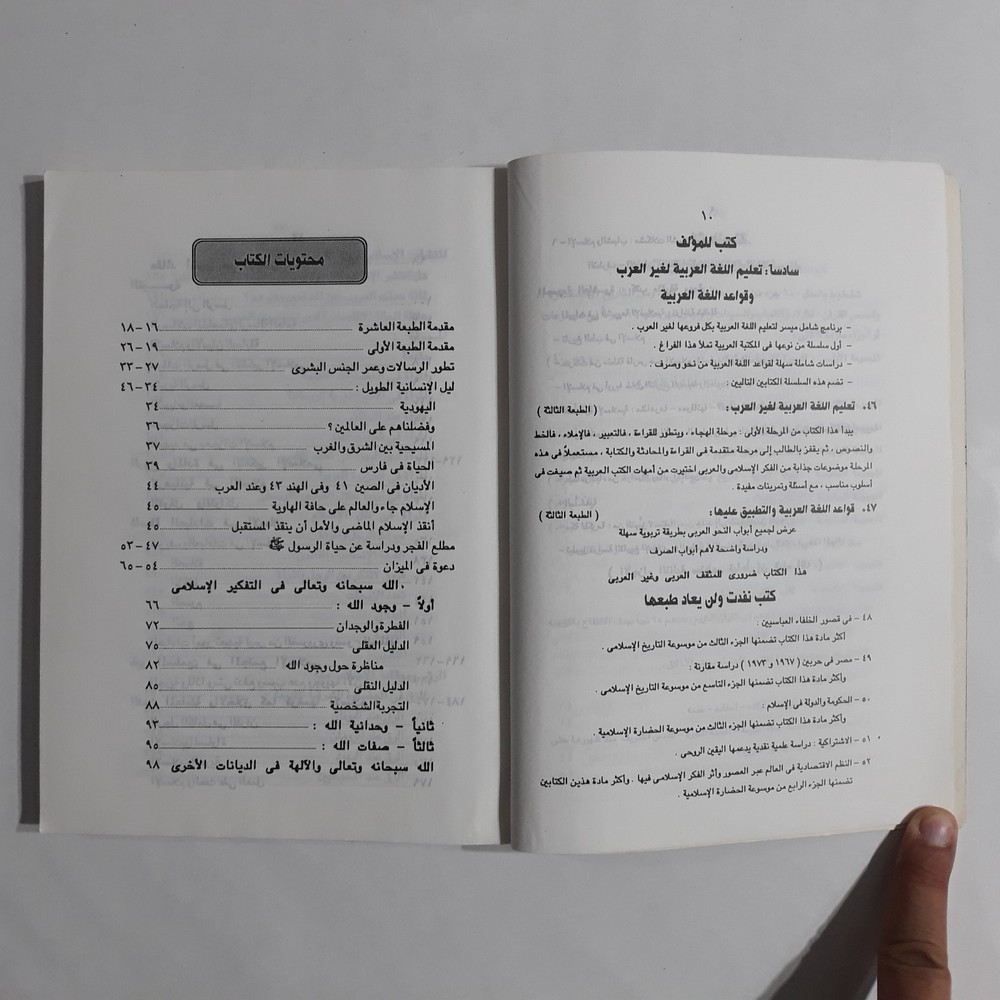 ١٠
كتب للمؤلف
سادسا: تعليم اللغة العربية لغير العرب
وقواعد اللغة العربية
– برنامج شامل ميسر لتعليم اللغة العربية بكل فروعها لغير العرب .
– أول سلسلة من نوعها فى المكتبة العربية تملأ هذا الفراغ .
– دراسات شاملة سهلة لقواعد اللغة العربية من نحو وصرف .
– تضم هذه السلسلة الكتابين التاليين :
٤٦. تعليم اللغة العربية لغير العرب: ( الطبعة الثالثة )
يبدأ هذا الكتاب من المرحلة الأولى : مرحلة الهجاء ، ويتطور للقراءة ، فالتعبير ، فالإملاء ، فالخط
والنصوص ، ثم يقفز بالطالب إلى مرحلة متقدمة فى القراءة والمحادثة والكتابة ، مستعملاً فى هذه
المرحلة موضوعات جذابة من الفكر الإسلامى والعربى اختيرت من أمهات الكتب العربية ثم صيغت فى
أسلوب مناسب ، مع أسئلة وتمرينات مفيدة .
٤٧. قواعد اللغة العربية والتطبيق عليها: ( الطبعة الثالثة )
عرض لجميع أبواب النحو العربى بطريقة تربوية سهلة
ودراسة واضحة لأهم أبواب الصرف.
هذا الكتاب ضرورى للمثقف العربى وغير العربى
كتب نفدت ولن يعاد طبعها
٤٨ – فى قصور الخلفاء العباسيين :
أكثر مادة هذا الكتاب تضمنها الجزء الثالث من موسوعة التاريخ الإسلامى .
٤٩ – مصر فى حربين ( ١٩٦٧ و ١٩٧٣ ) دراسة مقارنة :
وأكثر مادة هذا الكتاب تضمنها الجزء التاسع من موسوعة التاريخ الإسلامى .
٥٠ – الحكومة والدولة فى الإسلام :
وأكثر مادة هذا الكتاب تضمنها الجزء الثالث من موسوعة الحضارة الإسلامية .
٥١ – الاشتراكية : دراسة علمية نقدية يدعمها اليقين الروحى .
٥٢ – النظم الاقتصادية فى العالم عبر العصور وأثر الفكر الإسلامى فيها . وأكثر مادة هذين الكتابين
تضمنها الجزء الرابع من موسوعة الحضارة الإسلامية .
محتويات الكتاب
مقدمة الطبعة العاشرة ١٦–١٨
مقدمة الطبعة الأولى ١٩–٢٦
تطور الرسالات وعمر الجنس البشرى ٢٧–٣٣
ليل الإنسانية الطويل : ٣٤–٤٦
اليهودية ٣٤
وفضلناهم على العالمين ؟ ٣٦
المسيحية بين الشرق والغرب ٣٧
الحياة فى فارس ٣٩
الأديان فى الصين ٤١ وفى الهند ٤٣ وعند العرب ٤٤
الإسلام جاء والعالم على حافة الهاوية ٤٥
أنقذ الإسلام الماضى والأمل أن ينقذ المستقبل ٤٥
مطلع الفجر ودراسة عن حياة الرسول ﷺ ٤٧–٥٣
دعوة فى الميزان ٥٤–٦٥
الله سبحانه وتعالى فى التفكير الإسلامى
أولاً – وجود الله : ٦٦
الفطرة والوجدان ٧٢
الدليل العقلى ٧٥
مناظرة حول وجود الله ٨٢
الدليل النقلى ٨٥
التجربة الشخصية ٨٨
ثانياً – وحدانية الله : ٩٣
ثالثاً – صفات الله : ٩٥
الله سبحانه وتعالى والآلهة فى الديانات الأخرى ٩٨